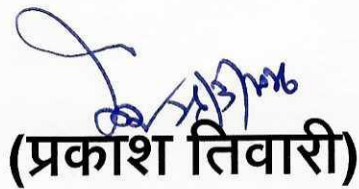 (प्रकाश तिवारी)